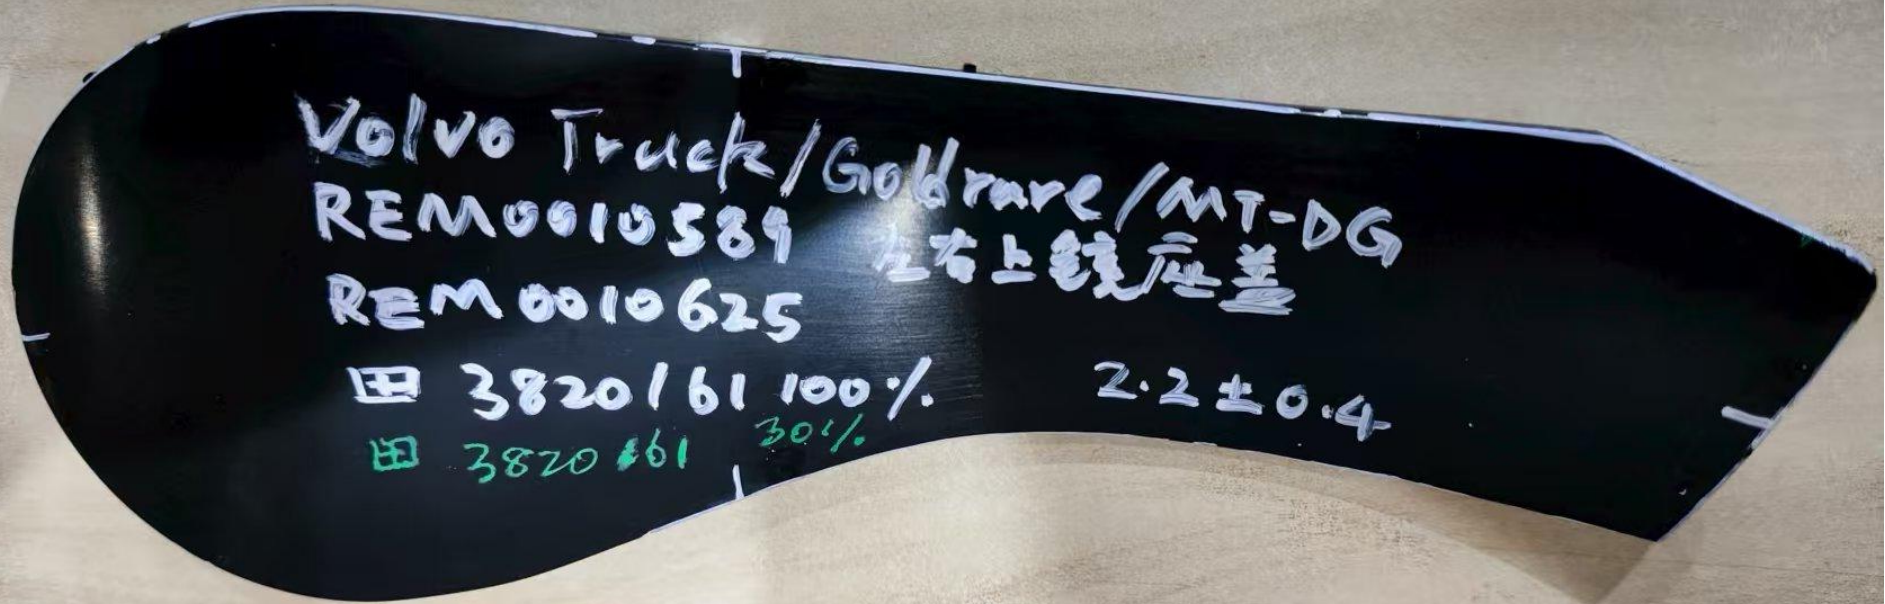 Volvo Truck/Goldrare/MT-DG
REM0010589 左右上镜座盖
REM0010625
田 3820161 100% 2.2±0.4
田 3820161 30%